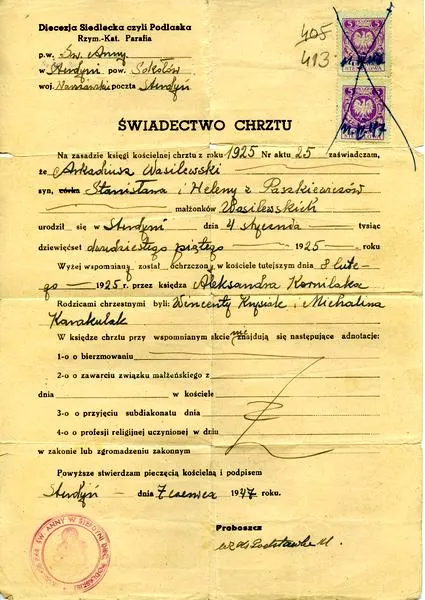 Diecezja Siedlecka czyli Podlaska
Rzym.-Kat. Parafia
p.w. Św. Anny
w Sterdyni pow. Sokołów
woj. Warszawski poczta Sterdyń
405
413
5
5
ŚWIADECTWO CHRZTU
Na zasadzie księgi kościelnej chrztu z roku 1925 Nr aktu 25 zaświadczam,
że Arkadiusz Wasilewski
syn, córka Stanisława i Heleny z Paszkiewiczów
małżonków Wasilewskich
urodził się w Sterdyni dnia 4 stycznia tysiąc
dziewięćset dwudziestego piątego 1925 roku
Wyżej wspomniany został ochrzczony w kościele tutejszym dnia 8 lute-
go 1925 r. przez księdza Aleksandra Kornilaka
Rodzicami chrzestnymi byli: Wincenty Krysiak i Michalina
Karakulak
W księdze chrztu przy wspomnianym akcie nie znajdują się następujące adnotacje:
1-o o bierzmowaniu
2-o o zawarciu związku małżeńskiego z
dnia w kościele
3-o o przyjęciu subdiakonatu dnia
4-o o profesji religijnej uczynionej w dniu
w zakonie lub zgromadzeniu zakonnym
Powyższe stwierdzam pieczęcią kościelną i podpisem
Sterdyń dnia 7 czerwca 1947 roku.
Proboszcz
ŚW. ANNY W STERDYNI